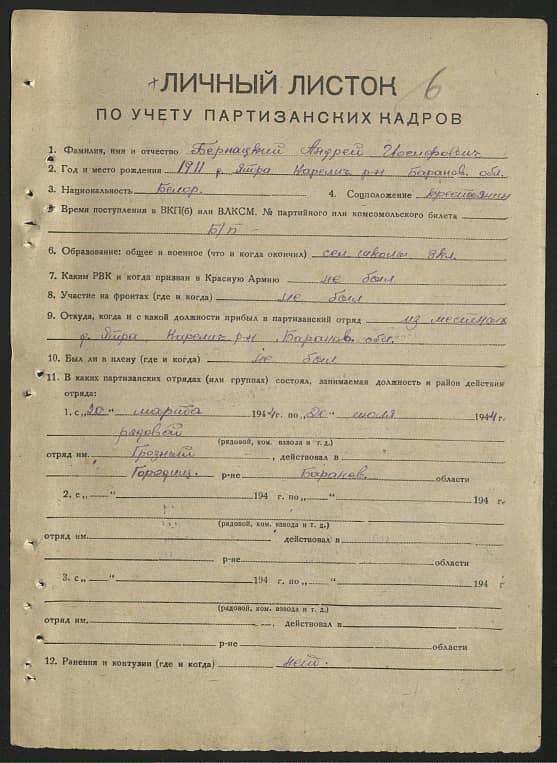 ЛИЧНЫЙ ЛИСТОК 6
ПО УЧЕТУ ПАРТИЗАНСКИХ КАДРОВ
1. Фамилия, имя и отчество Бернацкий Андрей Иосифович
2. Год и место рождения 1911 д. Ятра Карелич р-н Баранов. обл.
3. Национальность Белор. 4. Соцположение крестьянин
5. Время поступления в ВКП(б) или ВЛКСМ, № партийного или комсомольского билета
Б/П
6. Образование: общее и военное (что и когда окончил) сел. школы 3 кл.
7. Каким РВК и когда призван в Красную Армию не был
8. Участие на фронтах (где и когда) не был
9. Откуда, когда и с какой должности прибыл в партизанский отряд из местных
д. Ятра, Карелич р-н Баранов. обл.
10. Был ли в плену (где и когда) не был
11. В каких партизанских отрядах (или группах) состоял, занимаемая должность и район действия
отряда:
1. с „20“ марта 1944 г. по „20“ июля 1944 г.
рядовой
(рядовой, ком. взвода и т. д.)
отряд им. Грозный, действовал в
Городищ. р-не Баранов. области
2. с „ “ 194 г. по „ “ 194 г.
(рядовой, ком. взвода и т. д.)
отряд им. действовал в
р-не области
3. с „ “ 194 г. по „ “ 194 г
(рядовой, ком. взвода и т. д.)
отряд им. , действовал в
р-не области
12. Ранения и контузии (где и когда) нет.